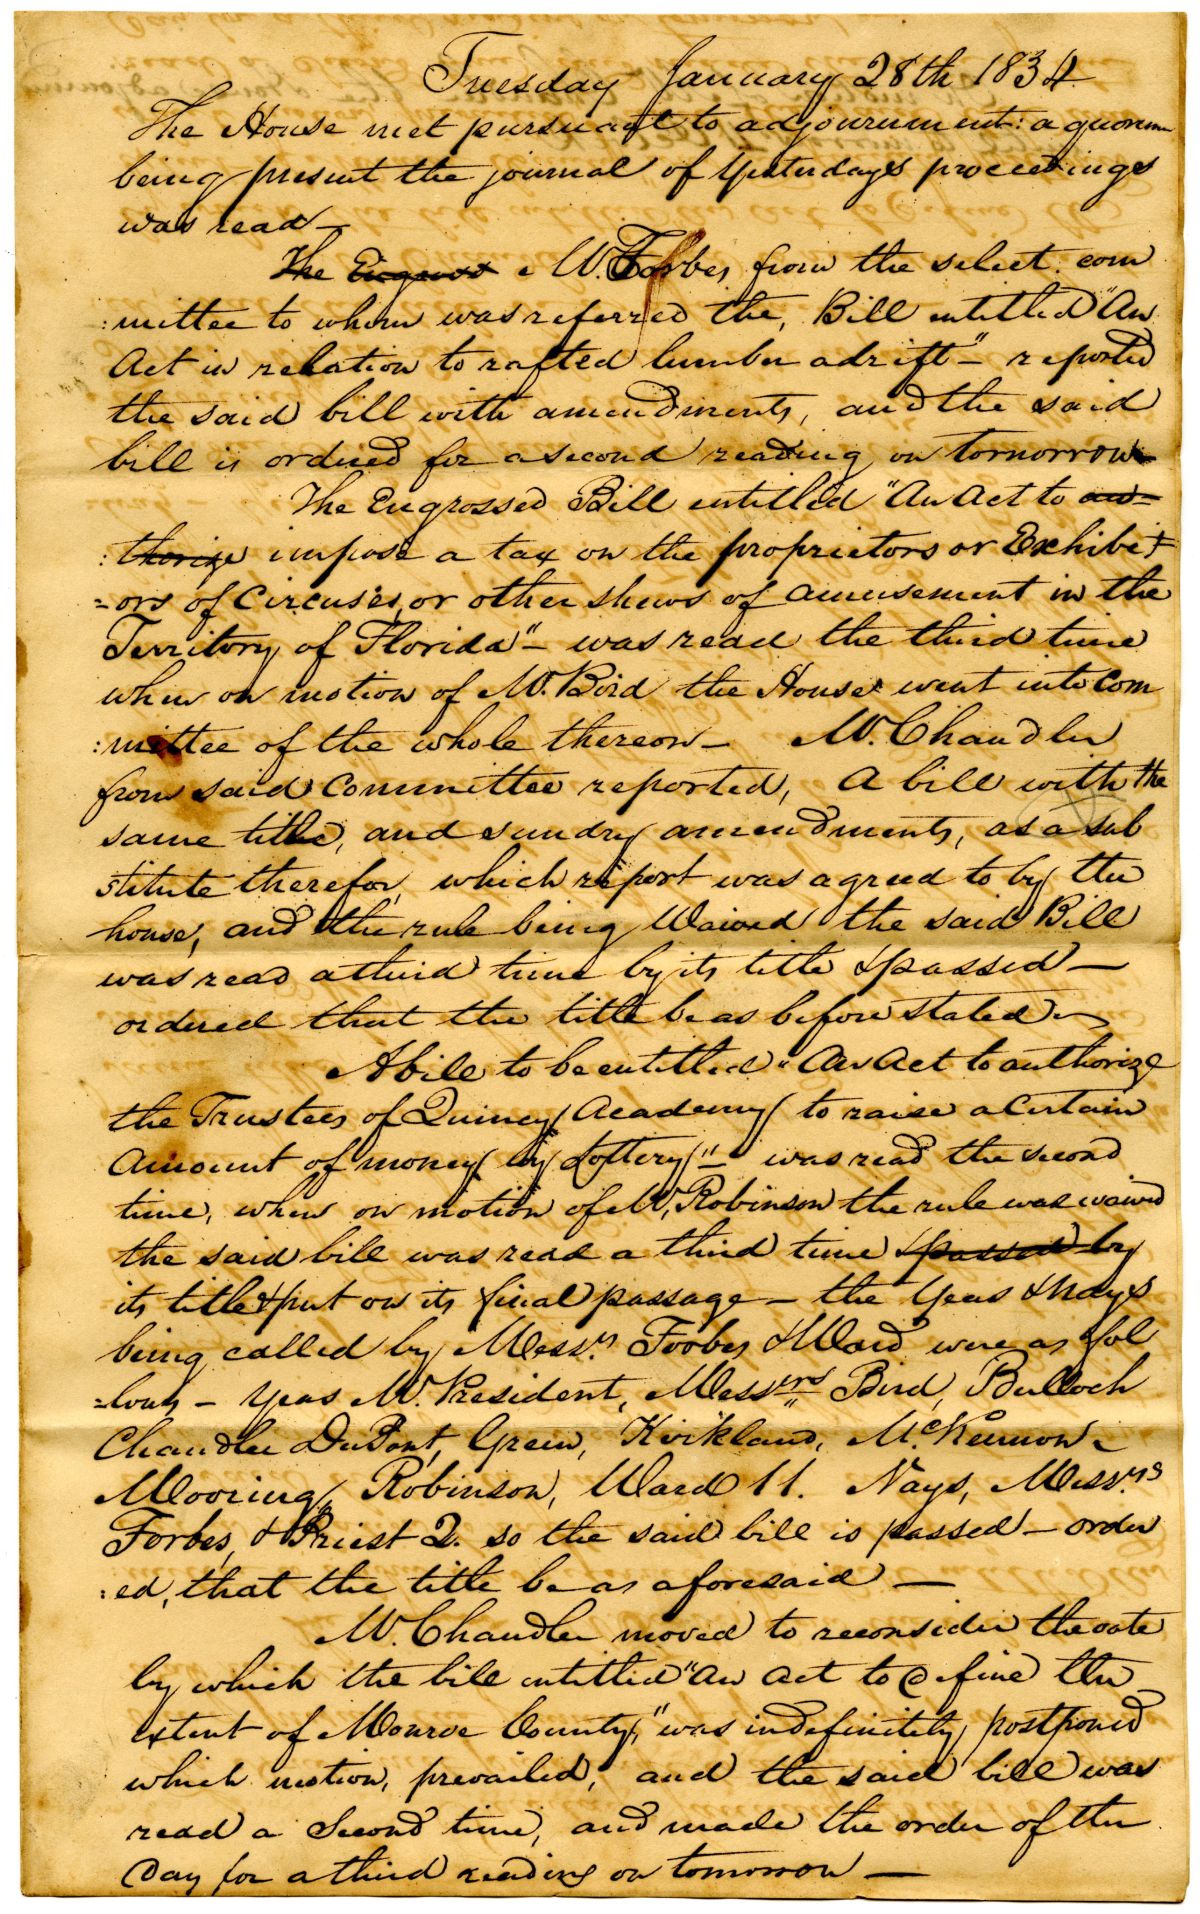 Tuesday January 28th 1834
The House met pursuant to adjournment: a quorum
being present the journal of yesterdays proceedings
was read —
The Engross Mr. Forbes from the select com
:mittee to whom was referred the, Bill entitled "An
Act in relation to rafted lumber adrift" — reported
the said bill with amendments, and the said
bill is ordered for a second reading on tomorrow —
The Engrossed Bill entitled "An Act to au=
:thorize impose a tax on the proprietors or Exhibit
=ors of Circuses, or other shows of amusement in the
Territory of Florida" — was read the third time
when on motion of Mr. Bird the House went into Com
:mittee of the whole thereon — Mr. Chandler
from said Committee reported, A bill with the
same title, and sundry amendments, as a sub
stitute therefor, which report was agreed to by the
house, and the rule being Waived the said Bill
was read a third time by its title & passed —
ordered that the title be as before stated —
A bill to be entitled "An Act to authorize
the Trustees of Quincy Academy to raise a Certain
Amount of money by Lottery" — was read the second
time, when on motion of Mr. Robinson the rule was waived
the said bill was read a third time & passed by
its title & put on its final passage — the Yeas & Nays
being called by Messrs. Forbes & Ward were as fol
=lows — Yeas Mr. President, Messers Bird, Bulloch
Chandler DuPont, Green, Kirkland, McKennon
Mooring, Robinson, Ward 11. Nays, Messrs
Forbes, & Priest 2. so the said bill is passed — order
:ed, that the title be as aforesaid —
Mr. Chandler moved to reconsider the vote
by which the bill entitled "An Act to define the
extent of Monroe County," was indefinitely postponed
which motion, prevailed, and the said bill was
read a Second time, and made the order of the
Day for a third reading on tomorrow —